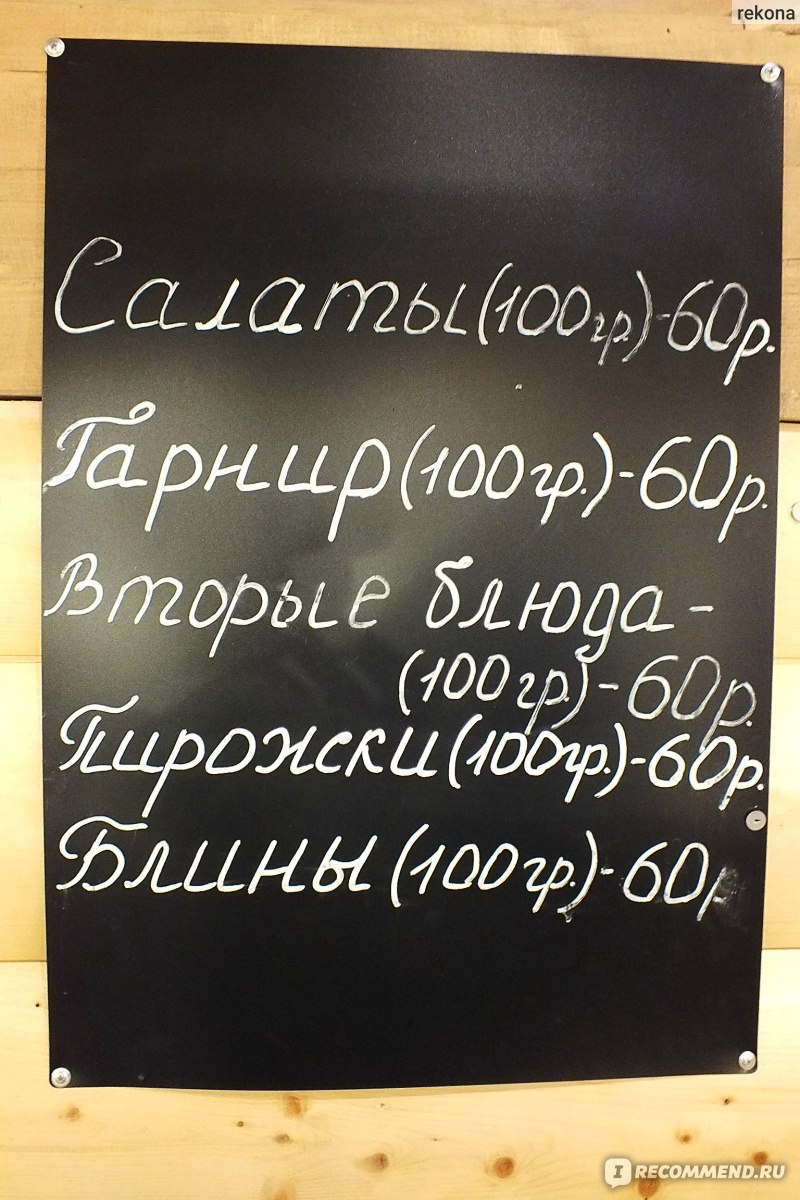 rekona
Салаты (100гр.)-60р.
Гарнир (100гр.)-60р.
Вторые блюда-
(100гр.)-60р.
Пирожски (100гр.)-60р.
Блины (100гр.)-60р
I RECOMMEND.RU